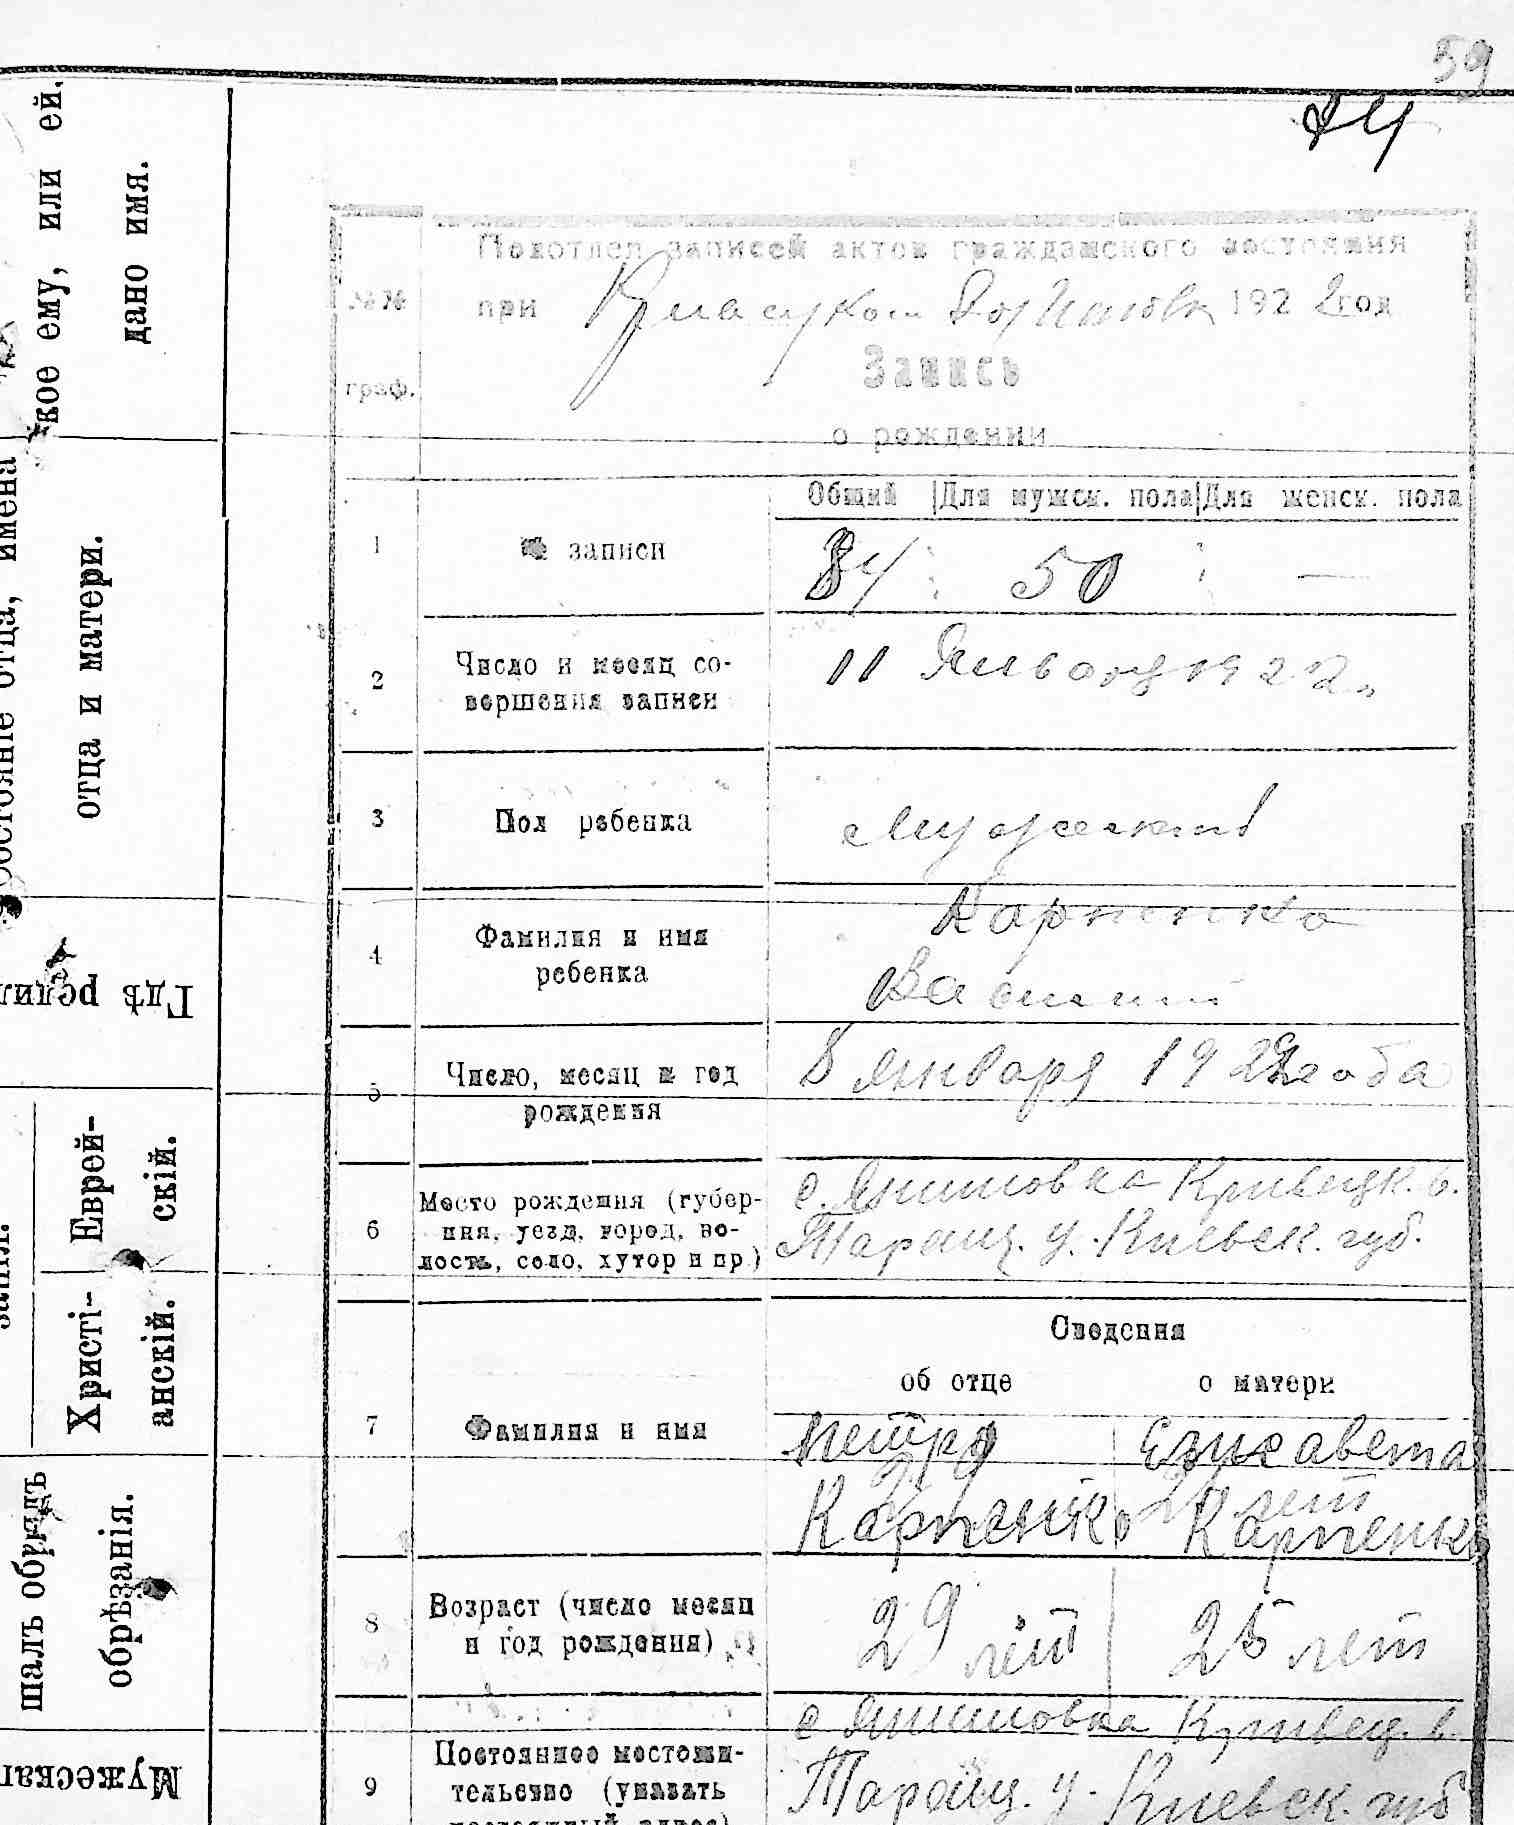 59
84
кое ему, или ей.
дано имя.
состояніе отца, имена
отца и матери.
Гдѣ родил
Еврей-
скій.
Христі-
анскій.
шалъ обрядъ
обрѣзанія.
Мужеская
Подотдел записей актов гражданского состояния
№№ при 1922 год
Запись
граф.
о рождении
Общий Для мужск. пола Для женск. пола
1 № записи 84 50 —
2 Число и месяц со-
вершения записи
11 Января 1922
3 Пол ребенка Мужский
4 Фамилия и имя
ребенка
Карпенко
Василий
5 Число, месяц и год
рождения
8 Января 1922 года
6 Место рождения (губер-
ния, уезд, город, во-
лость, село, хутор и пр.)
с. Янишовка Кривецк. в.
Таращ. у. Киевск. губ.
Сведения
об отце о матери
7 Фамилия и имя
Петро Елисавета
лет
Карпенко Карпенко
8 Возраст (число месяц
и год рождения)
29 лет 25 лет
9 Постоянное местожи-
тельство (указать
постоянный адрес)
с Янишовка Кривец. в.
Таращ. у. Киевск. губ